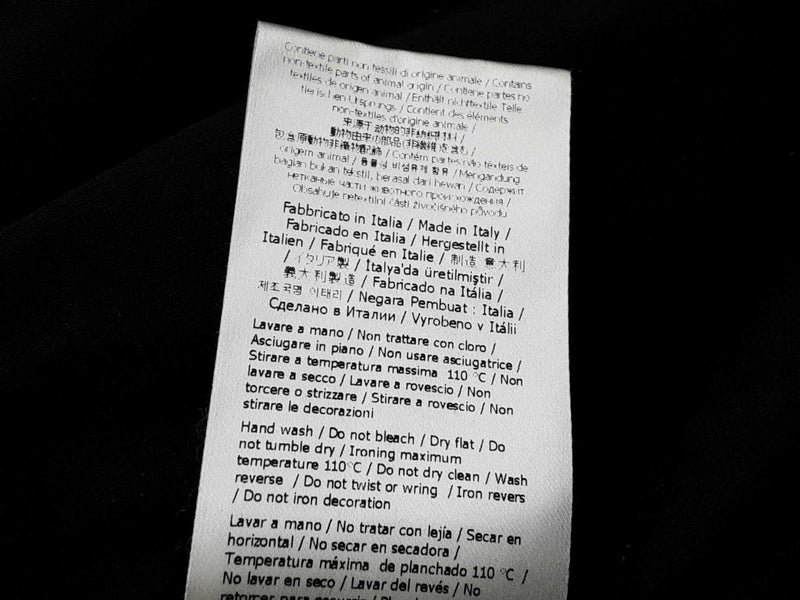 Contiene parti non tessili di origine animale / Contains
non-textile parts of animal origin / Contiene partes no
textiles de origen animal / Enthält nichttextile Teile
tierischen Ursprungs / Contient des éléments
non-textiles d'origine animale /
来源于动物的非纺织材料 /
動物由来の部品(非繊維)を含む /
包含原動物非織物配飾 / Contém partes não têxteis de
origem animal / 동물성 비섬유제 함유 / Mengandung
bagian bukan tekstil, berasal dari hewan / Содержит
нетканые части животного происхождения /
Obsahuje netextilní části živočišného původu
Fabbricato in Italia / Made in Italy /
Fabricado en Italia / Hergestellt in
Italien / Fabriqué en Italie / 制造 意大利
/ イタリア製 / İtalya'da üretilmiştir /
義大利製造 / Fabricado na Itália /
제조국명 이태리 / Negara Pembuat : Italia /
Сделано в Италии / Vyrobeno v Itálii
Lavare a mano / Non trattare con cloro /
Asciugare in piano / Non usare asciugatrice /
Stirare a temperatura massima 110 °C / Non
lavare a secco / Lavare a rovescio / Non
torcere o strizzare / Stirare a rovescio / Non
stirare le decorazioni
Hand wash / Do not bleach / Dry flat / Do
not tumble dry / Ironing maximum
temperature 110°C / Do not dry clean / Wash
reverse / Do not twist or wring / Iron revers
/ Do not iron decoration
Lavar a mano / No tratar con lejía / Secar en
horizontal / No secar en secadora /
Temperatura máxima de planchado 110 °C /
No lavar en seco / Lavar del revés / No
retorcer para escurrir /